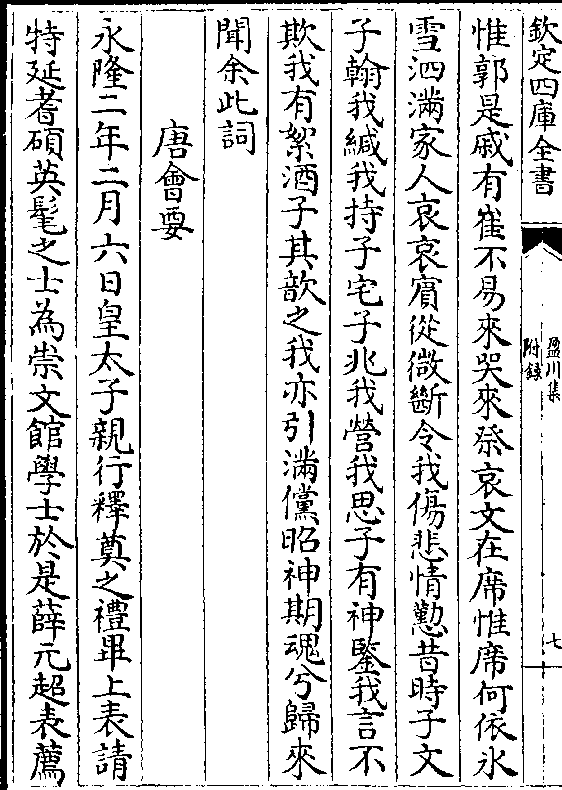 欽定四庫全書
盈川集
附錄
七
惟郭是戚有崔不易來哭來祭哀文在席惟席何依氷
雪泗滿家人哀哀賔從㣲斷令我傷悲情懃昔時子文
子翰我緘我持子宅子兆我營我思子有神鑒我言不
欺我有絮酒子其歆之我亦引滿儻昭神期魂兮歸來
聞余此詞
唐會要
永隆二年二月六日皇太子親行釋奠之禮畢上表請
特延耆碩英髦之士為崇文館學士於是薛元超表薦